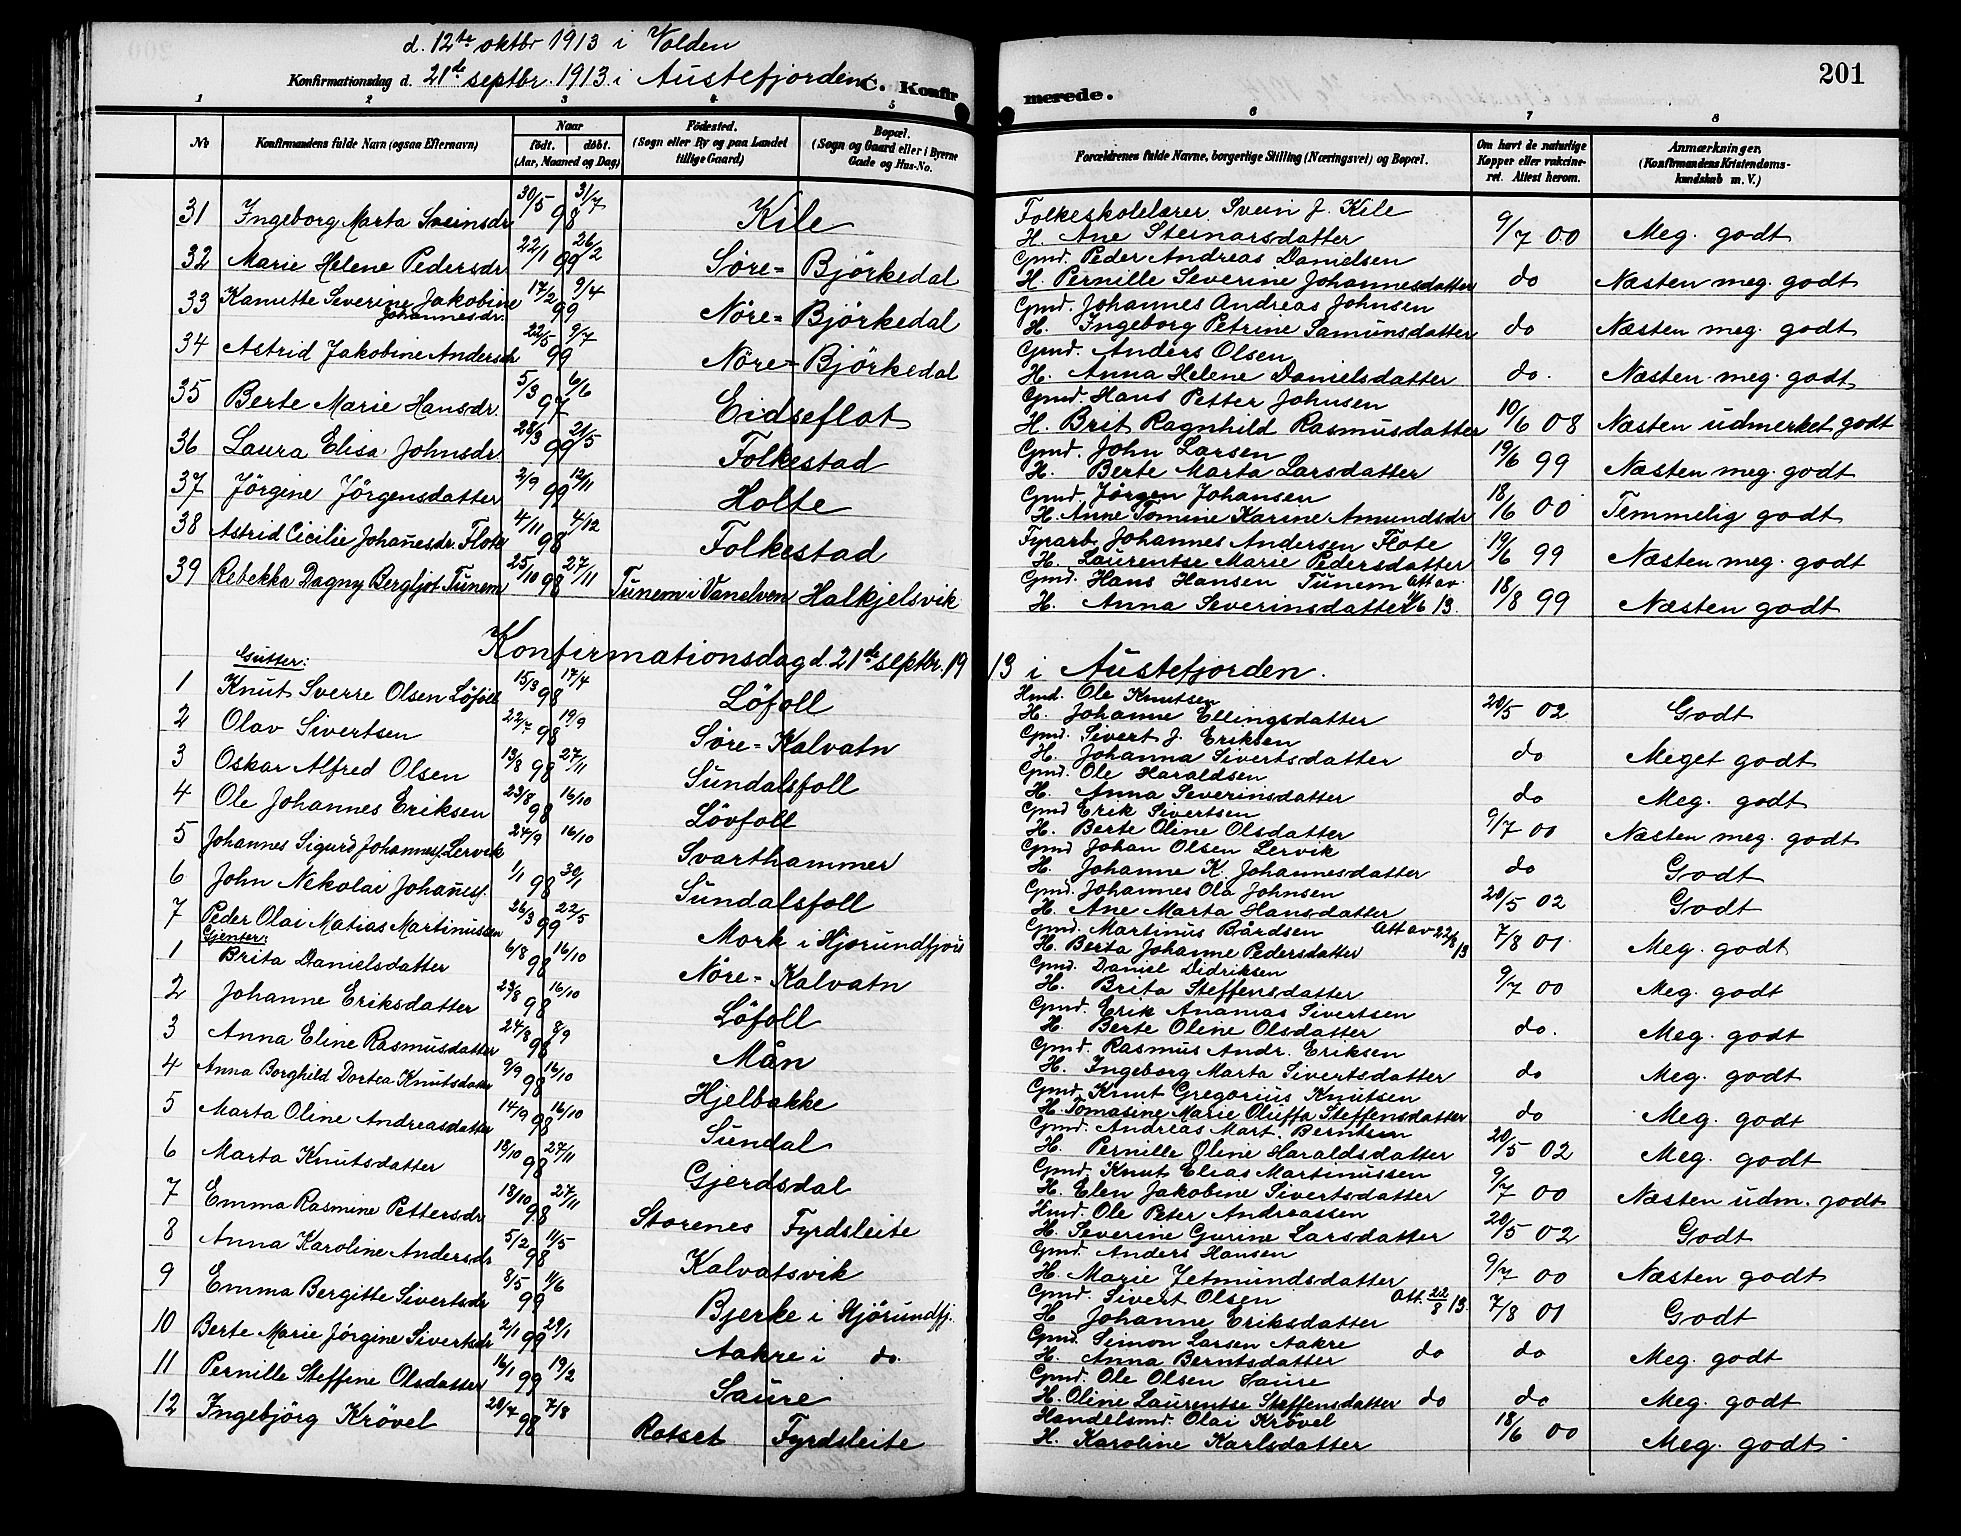 d. 12te oktbr 1913 i Volden
Konfirmationsdag d. 21de septbr. 1913 i Austefjorden C. Konfirmerede. 201
1 2 3 4 5 6 7 8
No Konfirmandens fulde Navn (ogsaa Efternavn) Naar født. døbt. (Aar, Maaned og Dag) Fødested. (Sogn eller By og paa Landet tillige Gaard) Bopæl. (Sogn og Gaard eller i Byerne Gade og Hus-No. Forældrenes fulde Navne, borgerlige Stilling (Næringsvei) og Bopæl. Om havt de naturlige Kopper eller vakcineret. Attest herom. Anmærkninger. (Konfirmandens Kristendomskundskab m. V.)
31 Ingeborg Marta Sveinsdr 30/5 98 31/7 Kile Folkeskolelærer Svein J. Kile
H. Ane Steinarsdatter 9/7 00 Meg. godt
32 Marie Helene Pedersdr 22/1 99 26/2 Søre- Björkedal Gmd. Peder Andreas Danielsen
H. Pernille Severine Johannesdatter do Næsten meg. godt
33 Kanutte Severine Jakobine Johannesdr. 17/2 99 9/4 Nöre- Björkedal Gmd. Johannes Andreas Johnsen
H. Ingeborg Petrine Samunsdatter do Næsten meg. godt
34 Astrid Jakobine Andersdr 22/5 99 9/7 Nöre- Björkedal Gmd. Anders Olsen
H. Anna Helene Danielsdatter do. Næsten meg. godt
35 Berte Marie Hansdr. 5/3 97 6/6 Eidseflot Gmd. Hans Petter Johnsen
H. Brit Ragnhild Rasmusdatter 10/6 08 Næsten udmerket godt
36 Laura Elisa Johnsdr 28/3 99 21/5 Folkestad Gmd. John Larsen
H. Berte Marta Larsdatter 19/6 99 Næsten meg. godt
37 Jörgine Jörgensdatter 2/9 99 12/11 Holte Gmd. Jörgen Johansen
H. Anne Tomine Karine Amundsdr 18/6 00 Temmelig godt
38 Astrid Cicilie Johan̄esdr. Flote 4/11 98 4/12 Folkestad Fyrarb. Johannes Andersen Flote
H. Laurentse Marie Pedersdatter 19/6 99 Næsten meg. godt
39 Rebekka Dagny Bergljot Tunem 25/10 98 27/11 Tunem i Vanelven Halkjelsvik Gmd. Hans Hansen Tunem Att av
H. Anna Severinsdatter 13. 18/8 99 Næsten godt
Konfirmationsdag d. 21de septbr. 1913 i Austefjorden.
Gutter:
1 Knut Sverre Olsen Löfoll 15/3 98 17/4 Löfoll Hmd. Ole Knutsen
H. Johanne Ellingsdatter 20/5 02 Godt
2 Olav Sivertsen 22/7 98 19/9 Søre- Kalvatn Gmd. Sivert J. Eriksen
H. Johanna Sivertsdatter do Meget godt
3 Oskar Alfred Olsen 13/8 98 27/11 Sundalsfoll Gmd. Ole Haraldsen
H. Anna Severinsdatter do Meg. godt
4 Ole Johannes Eriksen 23/8 98 16/10 Lövfoll Gmd Erik Sivertsen
H. Berte Oline Olsdatter 9/7 00 Næsten meg. godt
5 Johannes Sigurd Johannesf. Lervik 24/9 16/10 Svarthammer Gmd Johan Olsen Lervik
H. Johanne K. Johannesdatter do Godt
6 John Nekolai Johan̄esf. 1/1 98 30/1 Sundalsfoll Gmd. Johannes Ola Johnsen
H. Ane Marta Hansdatter 20/5 02 Godt
7 Peder Olai Matias Martinussen 26/3 99 22/5 Mork i Hjørundfjord Gmd. Martinus Bårdsen Att av 22/8 13
H. Berta Johanne Pedersdatter 7/8 01. Meg. godt
Gjenter:
1 Brita Danielsdatter 6/8 98 16/10 Nöre- Kalvatn Gmd. Daniel Didriksen
H. Brita Steffensdatter 9/7 00 Meg. godt
2 Johanne Eriksdatter 23/8 98 16/10 Löfoll Gmd. Erik Ananias Sivertsen
H. Berte Oline Olsdatter do. Meg. godt
3 Anna Eline Rasmusdatter 24/8 98 8/9 Mån Gmd. Rasmus Andr. Eriksen
H. Ingeborg Marta Sivertsdatter do Meg. godt
4 Anna Borghild Dortea Knutsdatter 9/9 98 16/10 Hjelbakke Gmd Knut Gregorius Knutsen
H. Tomasine Marie Oluffa Steffensdatter do Meg. godt
5 Marta Oline Andreasdatter 14/9 98 16/10 Sundal Gmd. Andreas Mart. Berntsen
H. Pernille Oline Haraldsdatter 20/5 02 Meg. godt
6 Marta Knutsdatter 19/10 98 27/11 Gjerdsdal Gmd. Knut Elias Martinussen
H. Elen Jakobine Sivertsdatter 9/7 00 Næsten udm. godt
7 Emma Rasmine Pettersdr 18/10 98 27/11 Storenes Fyrdsleite Hmd. Ole Peter Andreassen
H. Severine Gurine Larsdatter 20/5 02 Godt
8 Anna Karoline Andersdr 5/2 98 11/5 Kalvatsvik Gmd. Anders Hansen
H. Marie Jetmundsdatter 9/7 00 Næsten godt
9 Emma Bergitte Sivertsdr 8/5 99 11/6 Bjerke i Hjörundfj. Gmd. Sivert Olsen Att. 22/8 13.
H Johanne Eriksdatter 7/8 01 Godt
10 Berte Marie Jörgine Sivertsdr 2/1 99 29/1 Aakre i do. Gmd. Simon Larsen Aakre
H. Anna Berntsdatter do do Meg. godt
11 Pernille Steffine Olsdatter 16/1 99 19/2 Saure Gmd. Ole Olsen Saure
H. Oline Laurentse Steffensdatter do do Meg. godt
12 Ingebjörg Krövel 20/7 98 7/8 Rotset Fyrdsleite Handelsmd. Olai Krövel
H. Karoline Karlsdatter 18/6 00 Meg. godt